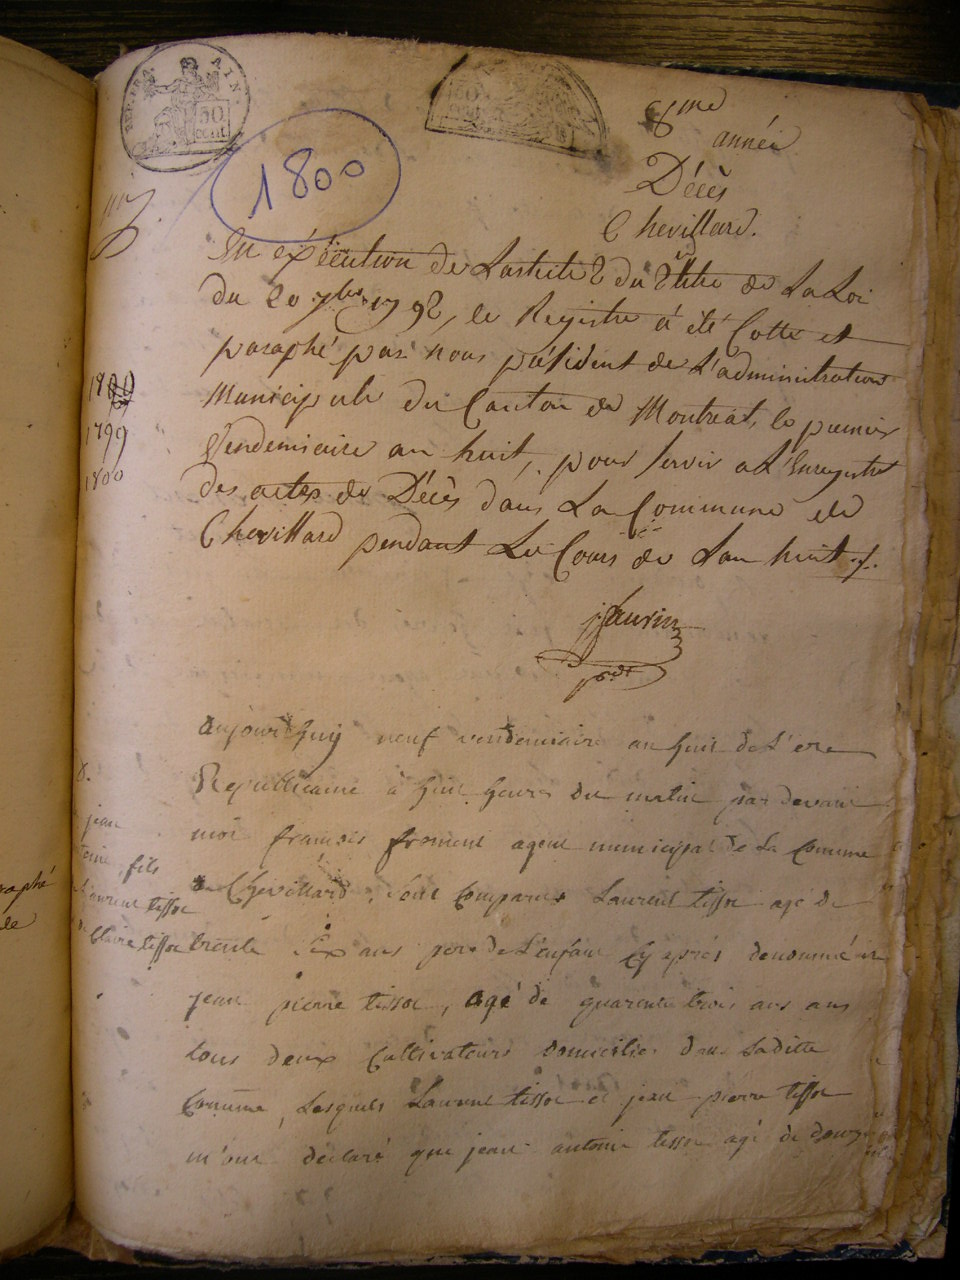 REP. FRA. AIN
50 CENT.
1800
8me
année
Décès
Chevillard.
En exécution de Larticle 2 du titre 2 de La Loi
du 20 7bre 1792, le Registre a été Cotté et
paraphé par nous président de L'administration
Municipale du Canton de Montreal, le premier
Vendemiaire an huit, pour servir a L'Enregistre
des actes de Décès dans La Commune de
Chevillard pendant Le Cours de Lan huit ./.
1799
1800
jSaurin
pdt
aujourdhuy neuf vendemiaire an huit de L'ere
Republicaine à huit heures du matin par devant
moi francois froment agent municipal de La Comune
de Chevillard, sont Comparus Laurent tissot agé de
trente six ans pere de L'enfant Cy après denommé et
jean pierre tissot, agé de quarente trois ans ans
tous deux Cultivateurs domiciliés dans Laditte
Comune, Lesquels Laurent tissot et jean pierre tissot
m'ont declaré que jean antoine tissot agé de douze
jean
fils
Laurent tissot
Claire tissot
raphé
de